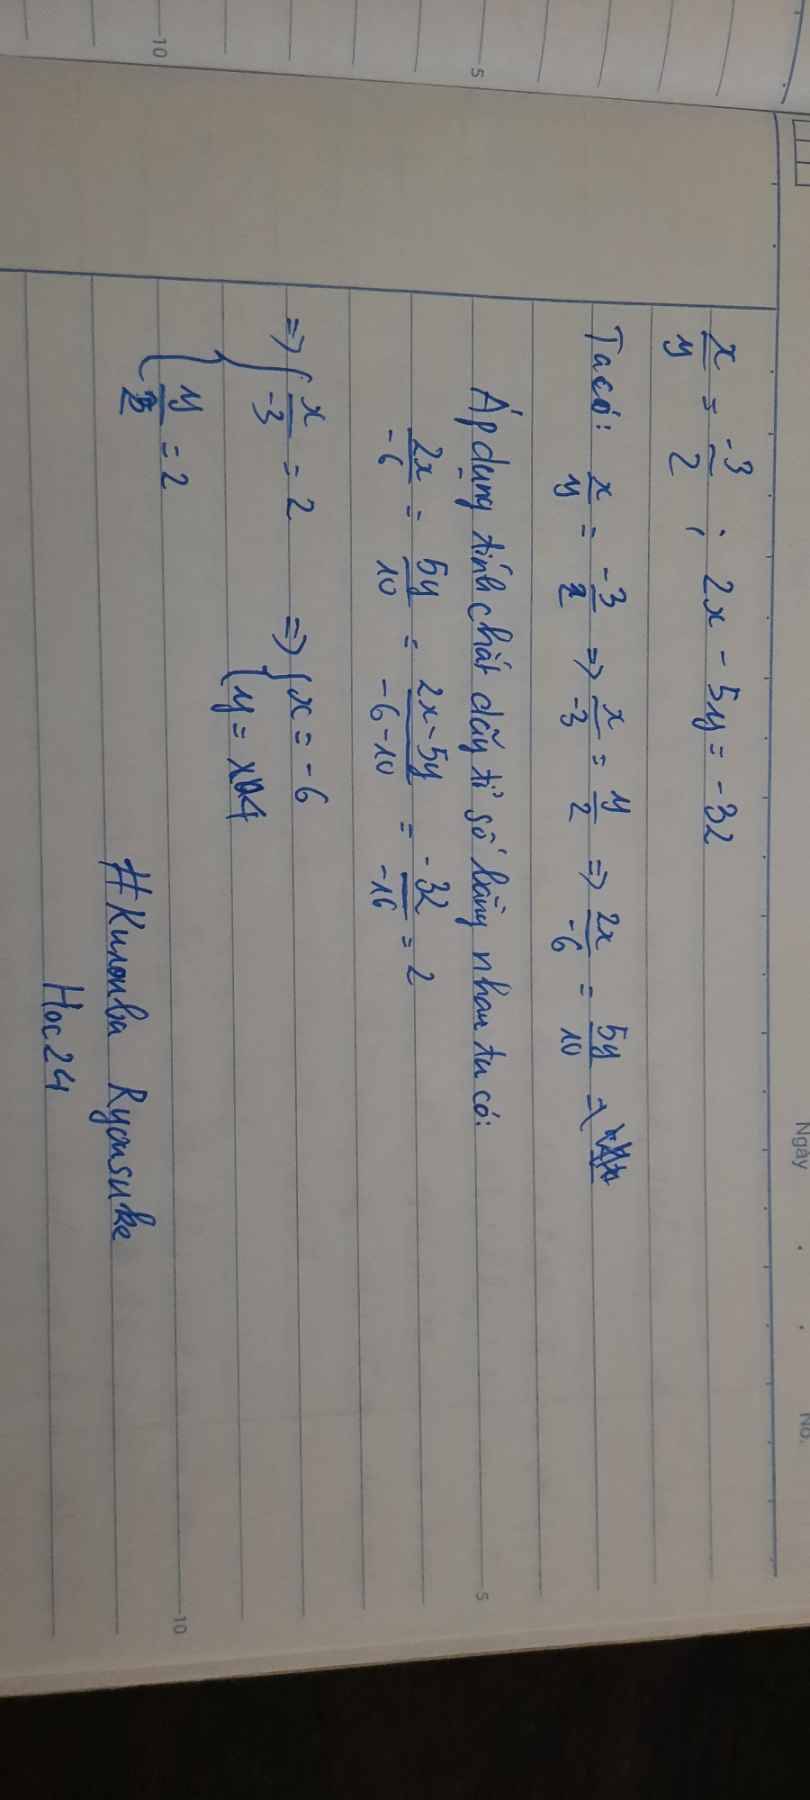 Ngày No.
x/y = -3/2 ; 2x - 5y = -32
Ta có: x/y = -3/2 => x/-3 = y/2 => 2x/-6 = 5y/10 =>
Áp dụng tính chất dãy tỉ số bằng nhau ta có:
2x/-6 = 5y/10 = 2x-5y/-6-10 = -32/-16 = 2
=> { x/-3 = 2 => { x = -6
y/2 = 2 y = 4
#Kuroba Ryousuke
Hoc24
5
10
5
10